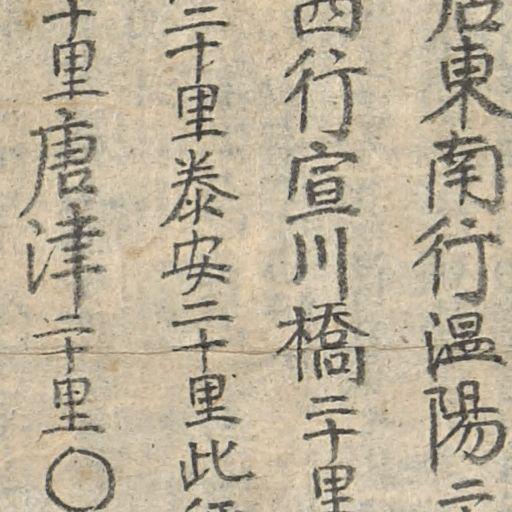 東南行温陽二
行宣川橋二十里
二十里泰安二十里此
十里唐津二十里〇